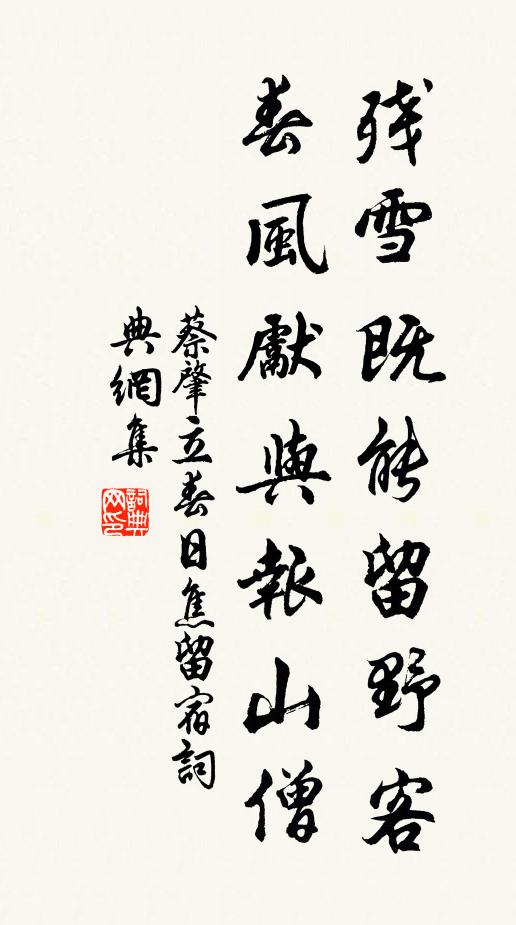 残雪既能留野客
春風獻與報山僧
蔡肇立春日焦留宿詞
典網集
詞典网印